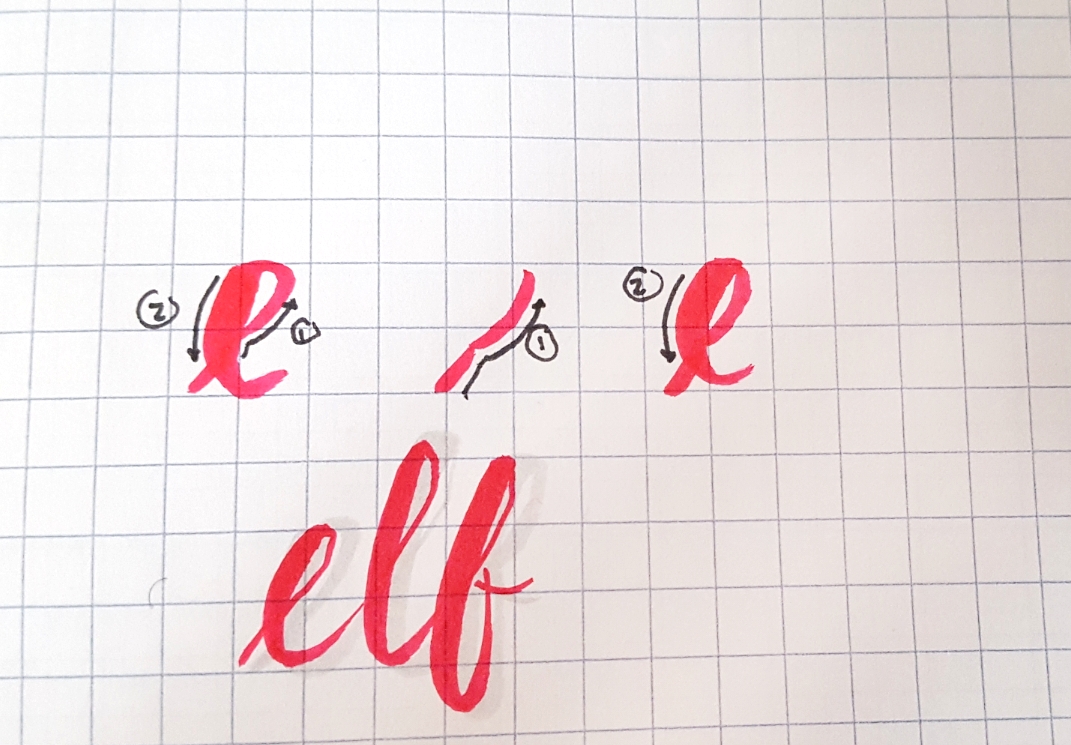 ② e ① ① ② e
elf